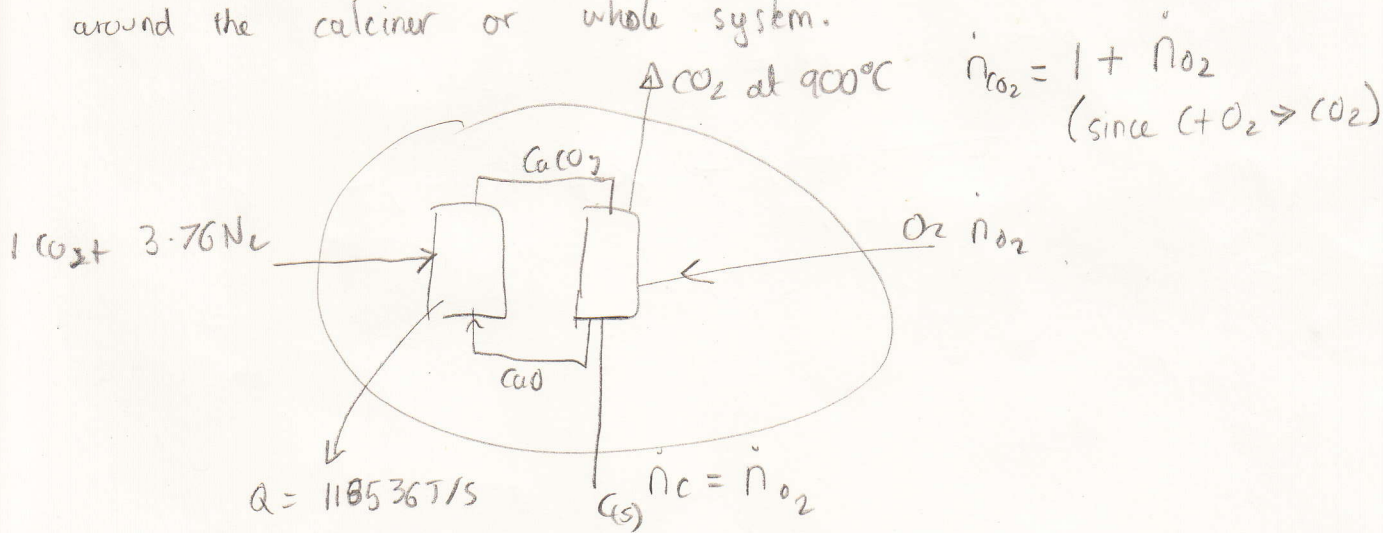 around the calciner or whole system.
CO₂ at 900°C
ṅCO₂ = 1 + ṅO₂
(since C+O₂ → CO₂)
CaCO₃
1 CO₂+ 3.76N₂
O₂ ṅO₂
CaO
Q = 118536J/S
C(s) ṅC = ṅO₂